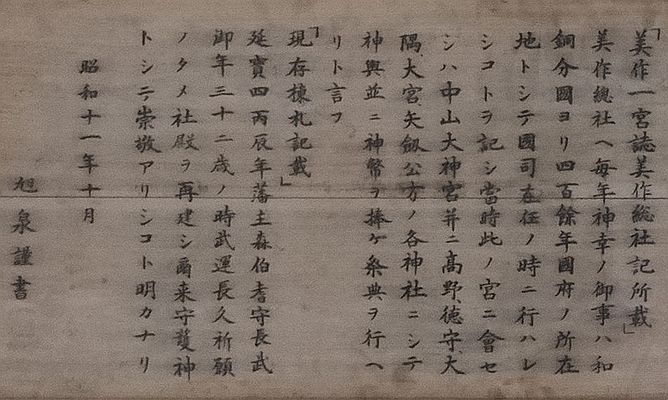 「美作一宮誌美作総社記所載」
美作總社へ毎年神幸ノ御事ハ和
銅分國ヨリ四百餘年國府ノ所在
地トシテ國司在任ノ時ニ行ハレ
シコトヲ記シ當時此ノ宮ニ會セ
シハ中山大神宮并ニ高野徳守、大
隅、大宮、矢劔公方ノ各神社ニシテ
神輿並ニ神幣ヲ捧ケ祭典ヲ行ヘ
リト言フ
「現存棟札記載」
延寶四丙辰年藩主森伯耆守長武
御年三十二歳ノ時武運長久祈願
ノタメ社殿ヲ再建シ爾来守護神
トシテ崇敬アリシコト明カナリ
昭和十一年十月
旭泉謹書